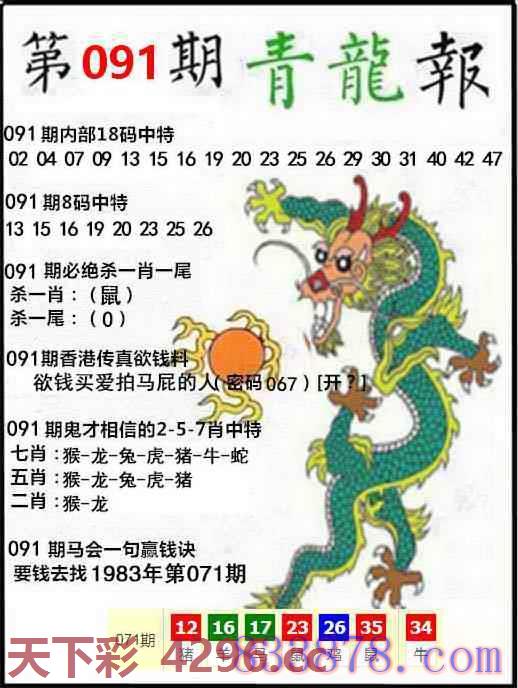 第091期 青龍報
091期内部18码中特
02 04 07 09 13 15 16 19 20 23 25 26 29 30 31 40 42 47
091期8码中特
13 15 16 19 20 23 25 26
091期必绝杀一肖一尾
杀一肖：(鼠)
杀一尾：(0)
091期香港传真欲钱料
欲钱买爱拍马屁的人(密码067)[开？]
091期鬼才相信的2-5-7肖中特
七肖：猴-龙-兔-虎-猪-牛-蛇
五肖：猴-龙-兔-虎-猪
二肖：猴-龙
091期马会一句赢钱诀
要钱去找1983年第071期
071期 12 16 17 23 26 35 34
猪 羊 马 鼠 鸡 鼠 牛
天下彩 4296.cc